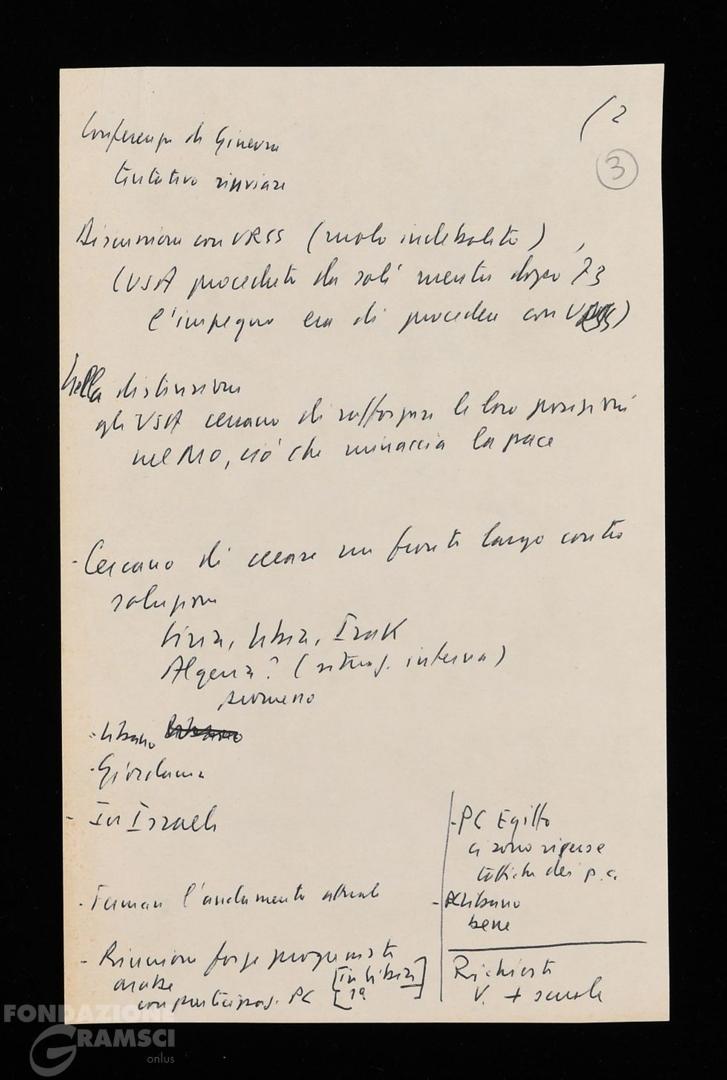 (2
3
Conferenza di Ginevra
tentativo rinviare
Discussioni con URSS (ruolo indebolito)
(USA proceduto da soli mentre dopo '73
l'impegno era di procedere con URSS)
Nella distensione
gli USA cercano di rafforzare le loro posizioni
nel MO, ciò che minaccia la pace
- Cercano di creare un fronte largo contro
soluzioni
Siria, Libia, Irak
Algeria? (situaz. interna)
- Libano
- Giordania
- In Israele
- Fermare l'andamento attuale
- Riunione forze progressiste
arabe [in Libia]
con partecipaz. PC [
- PC Egitto
ci sono riprese
tattiche dei p.c.
- PC Libano
bene
Richieste
V. + scuole
FONDAZIONE
GRAMSCI
onlus